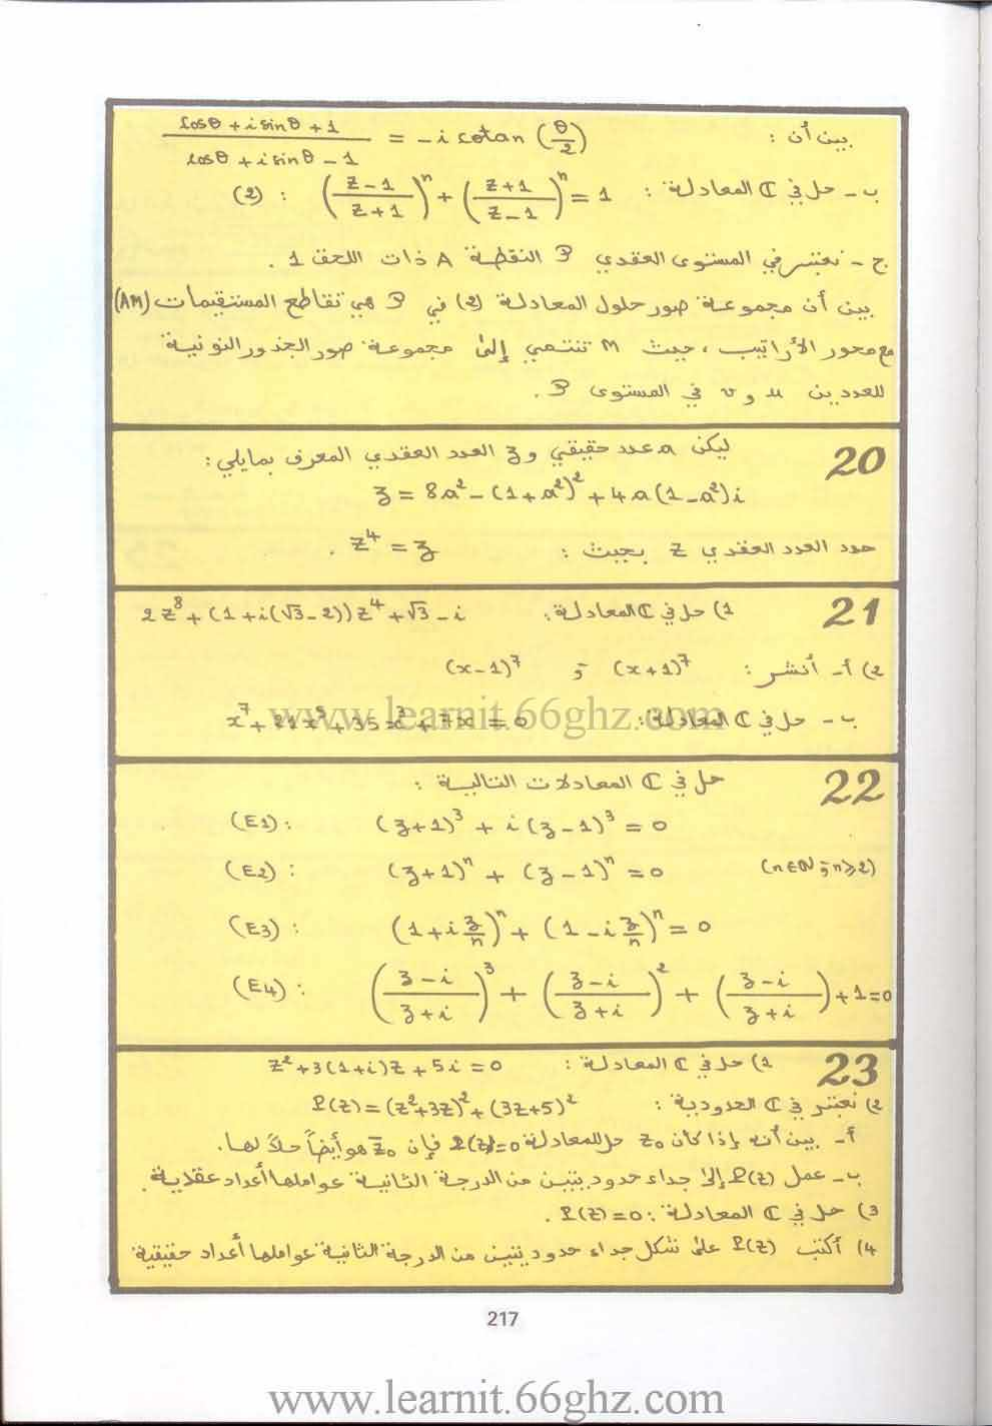 بين أن : (cosθ + i sinθ + 1)/(cosθ + i sinθ - 1) = -i cotan (θ/2)
ب - حل في ℂ المعادلة : ((z-1)/(z+1))^n + ((z+1)/(z-1))^n = 1 : (2)
ج - نعتبر في المستوى العقدي P النقطة A ذات اللحق 1 .
بين أن مجموعة صور حلول المعادلة (2) في P هي تقاطع المستقيمات (AM)
مع محور الأراتيب ، حيث M تنتمي إلى مجموعة صور الجذور النونية
للعددين u و v في المستوى P .
20
ليكن a عدد حقيقي و z العدد العقدي المعرف بمايلي :
z = 8a² - (1+a²)² + 4a(1-a²)i
حدد العدد العقدي Z بحيث : Z⁴ = z .
21
1) حل في ℂ المعادلة : 2z⁸ + (1+i(√3-2))z⁴ + √3 - i
2) أ - أنشر : (x+1)⁷ و (x-1)⁷
ب - حل في ℂ المعادلة : x⁷ + 21x⁵ + 35x³ + 7x = 0
www.learnit.66ghz.com
22
حل في ℂ المعادلات التالية :
(E1) : (z+1)³ + i(z-1)³ = 0
(E2) : (z+1)^n + (z-1)^n = 0 (n∈ℕ ; n≥2)
(E3) : (1+i z/n)^n + (1-i z/n)^n = 0
(E4) : ((z-i)/(z+i))³ + ((z-i)/(z+i))² + ((z-i)/(z+i)) + 1 = 0
23
1) حل في ℂ المعادلة : z² + 3(1+i)z + 5i = 0
2) نعتبر في ℂ الحدودية : P(z) = (z²+3z)² + (3z+5)²
أ - بين أنه إذا كان z₀ حل للمعادلة P(z)=0 فإن z̄₀ هو أيضاً حلاً لها .
ب - عمل P(z) إلى جداء حدوديتين من الدرجة الثانية عواملها أعداد عقدية .
3) حل في ℂ المعادلة : P(z) = 0 .
4) أكتب P(z) على شكل جداء حدوديتين من الدرجة الثانية عواملها أعداد حقيقية
217
www.learnit.66ghz.com